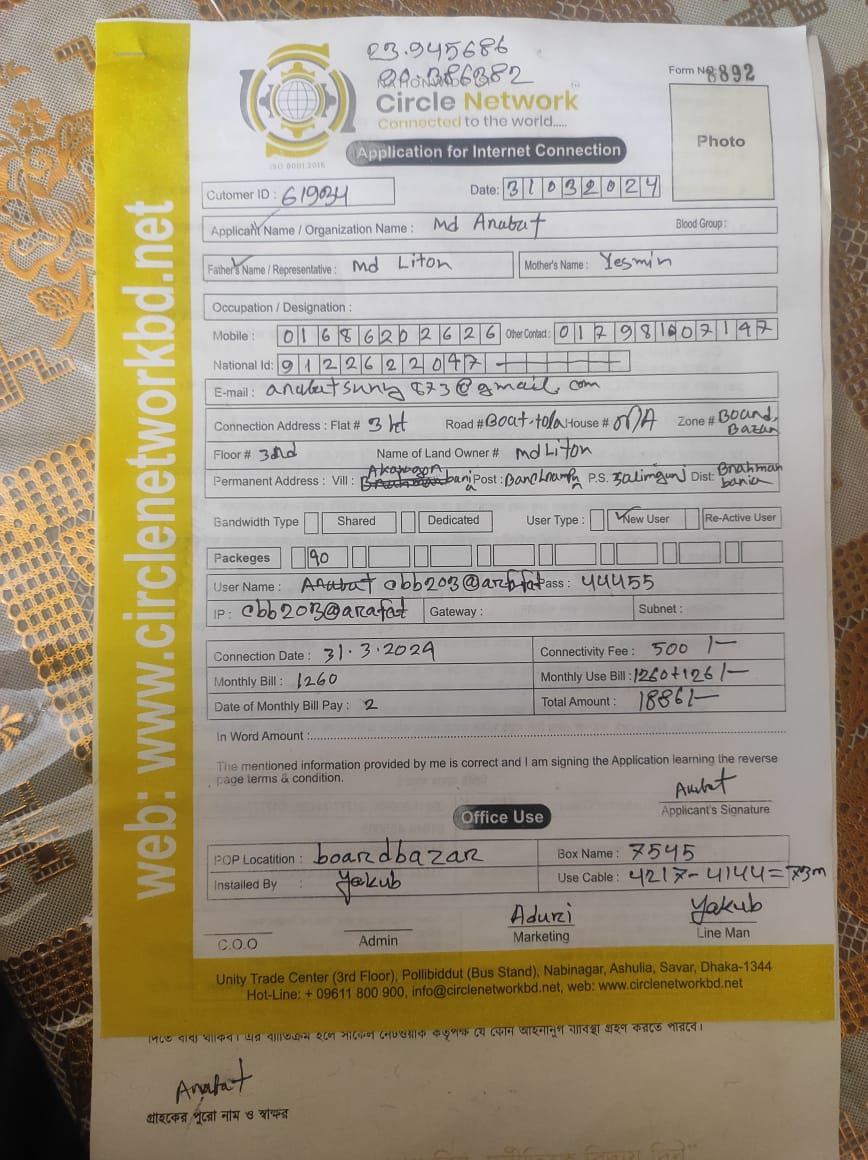 23.945686
90.386382
Circle Network
Connected to the world.....
ISO 9001:2015
Form No 8892
Photo
Application for Internet Connection
Cutomer ID : 61904
Date: 31032024
Applicant Name / Organization Name : Md Arabat
Blood Group :
Father's Name / Representative : Md Liton
Mother's Name : Yesmin
Occupation / Designation :
Mobile : 01686202626 Other Contact :
National Id: 9122622047
E-mail :
Connection Address : Flat # Road # Boat-tola House # N/A Zone # Board Bazar
Floor # 3rd Name of Land Owner # md Liton
Permanent Address : Vill : Post : P.S. Dist:
Bandwidth Type Shared Dedicated User Type : New User Re-Active User
Packeges 90
User Name : Pass : 44455
IP : cbb203@arafat Gateway : Subnet :
Connection Date : 31.3.2024 Connectivity Fee : 500 /-
Monthly Bill : 1260 Monthly Use Bill : 1260+126/-
Date of Monthly Bill Pay : 2 Total Amount : 1886/-
In Word Amount :
The mentioned information provided by me is correct and I am signing the Application learning the reverse
page terms & condition.
Applicant's Signature
Office Use
POP Locatition : boardbazar Box Name : 7545
Installed By : Yakub Use Cable : 4217-4144=73m
Aduri Yakub
C.O.O Admin Marketing Line Man
Unity Trade Center (3rd Floor), Pollibiddut (Bus Stand), Nabinagar, Ashulia, Savar, Dhaka-1344
Hot-Line: + 09611 800 900, info@circlenetworkbd.net, web: www.circlenetworkbd.net
web: www.circlenetworkbd.net
গ্রাহকের পুরো নাম ও স্বাক্ষর